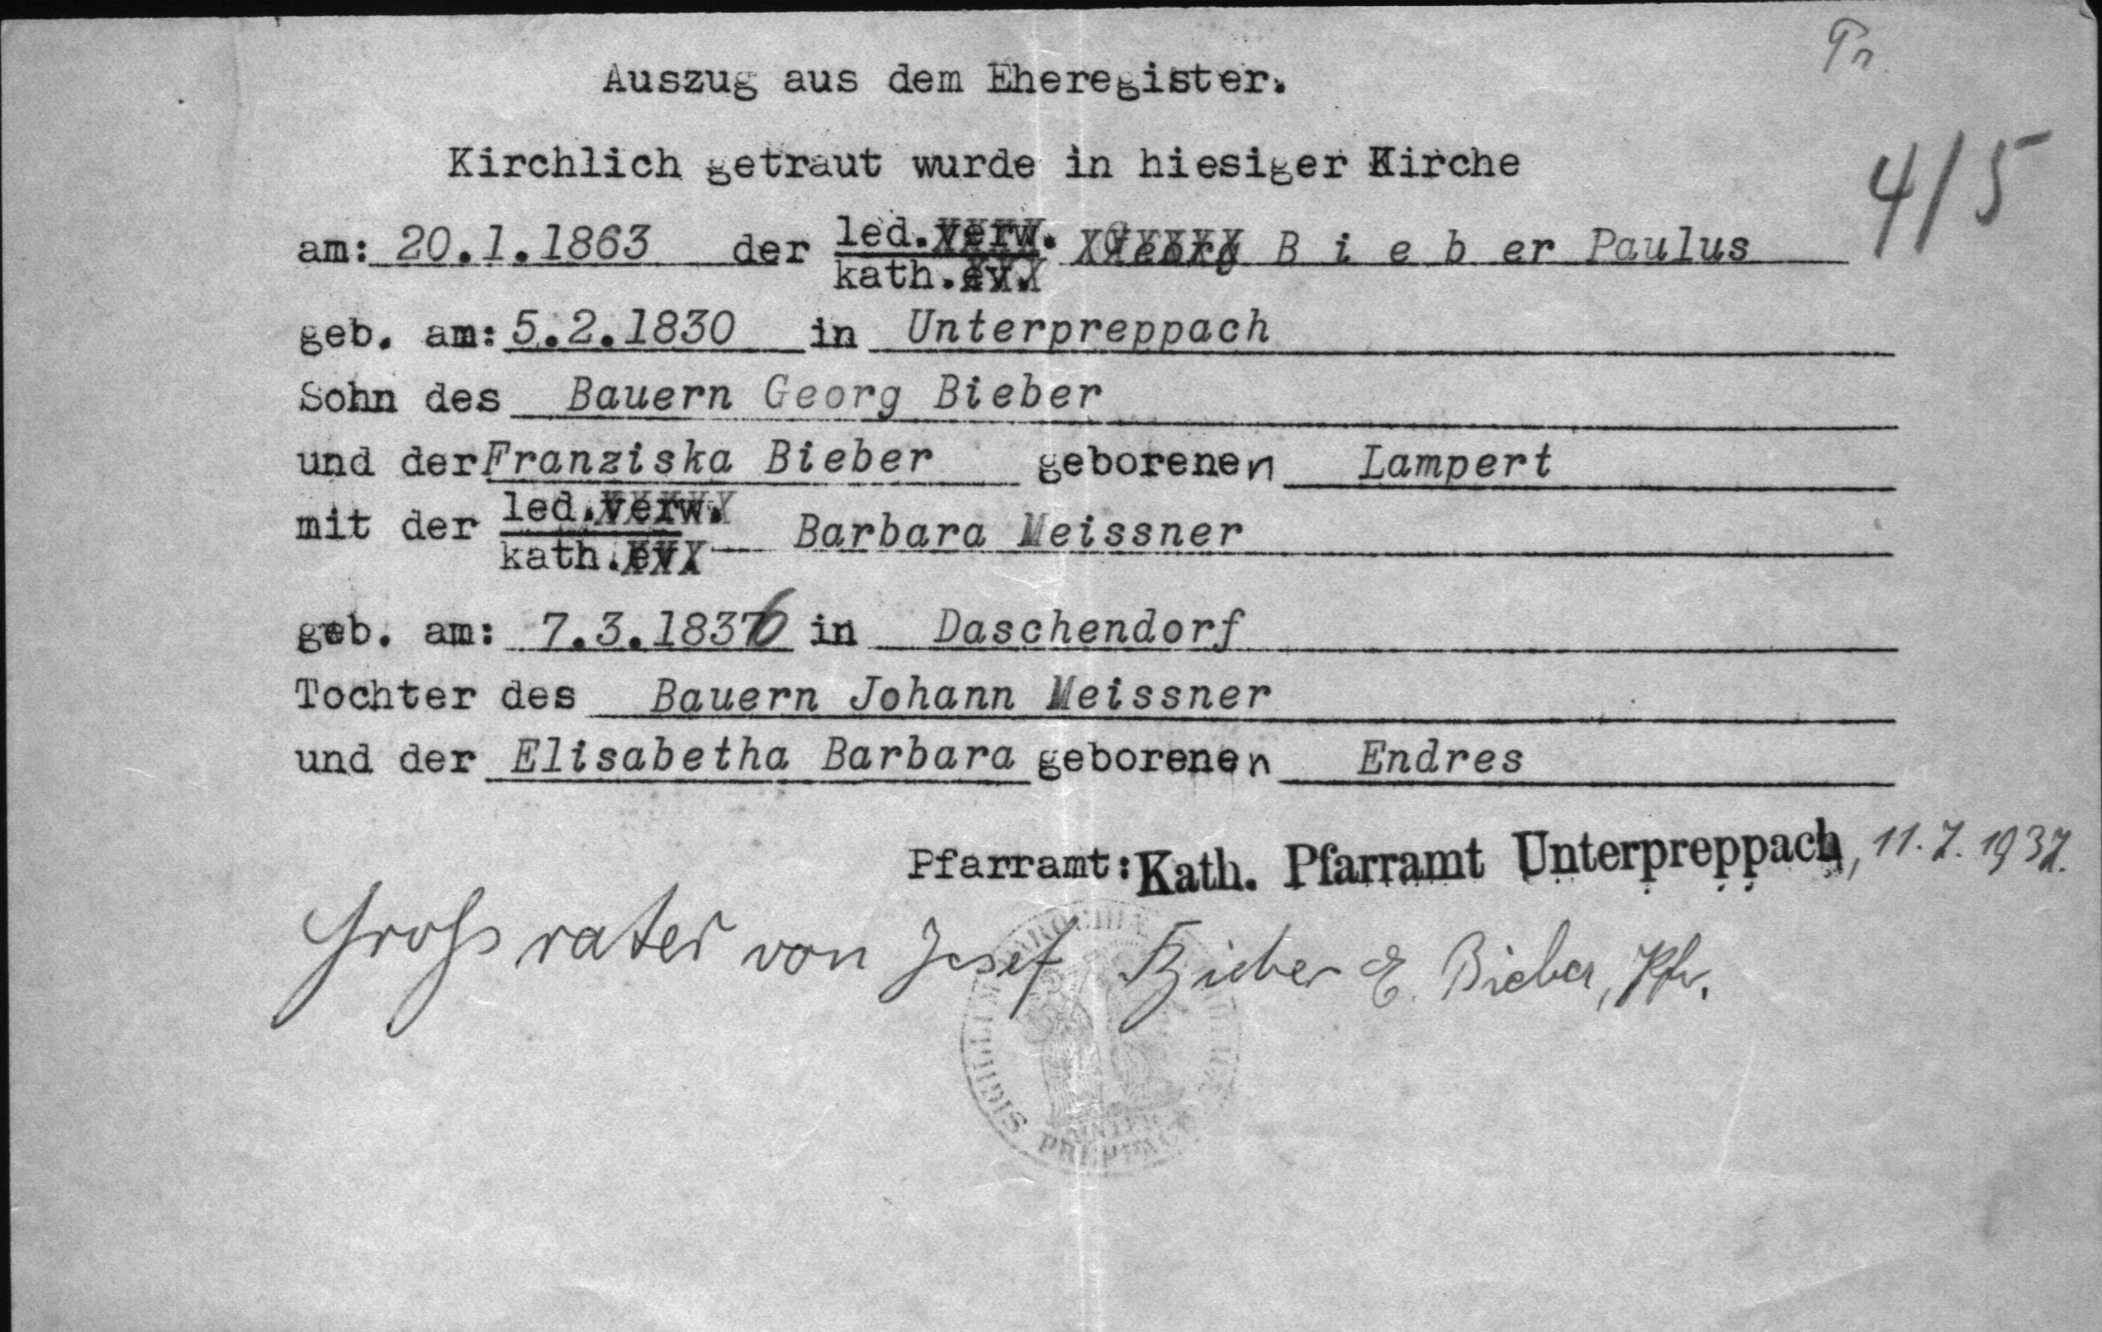 Pr
Auszug aus dem Eheregister.
Kirchlich getraut wurde in hiesiger Kirche
4/5
am: 20.1.1863 der led. verw. kath. ev. Georg B i e b er Paulus
geb. am: 5.2.1830 in Unterpreppach
Sohn des Bauern Georg Bieber
und der Franziska Bieber geborenen Lampert
mit der led. verw. kath. ev. Barbara Meissner
geb. am: 7.3.1836 in Daschendorf
Tochter des Bauern Johann Meissner
und der Elisabetha Barbara geborenen Endres
Pfarramt: Kath. Pfarramt Unterpreppach, 11.7.1937.
Grossvater von Josef Bieber E. Bieber, Pfr.
SIGILLUM PAROCHIAE
PREPPACH